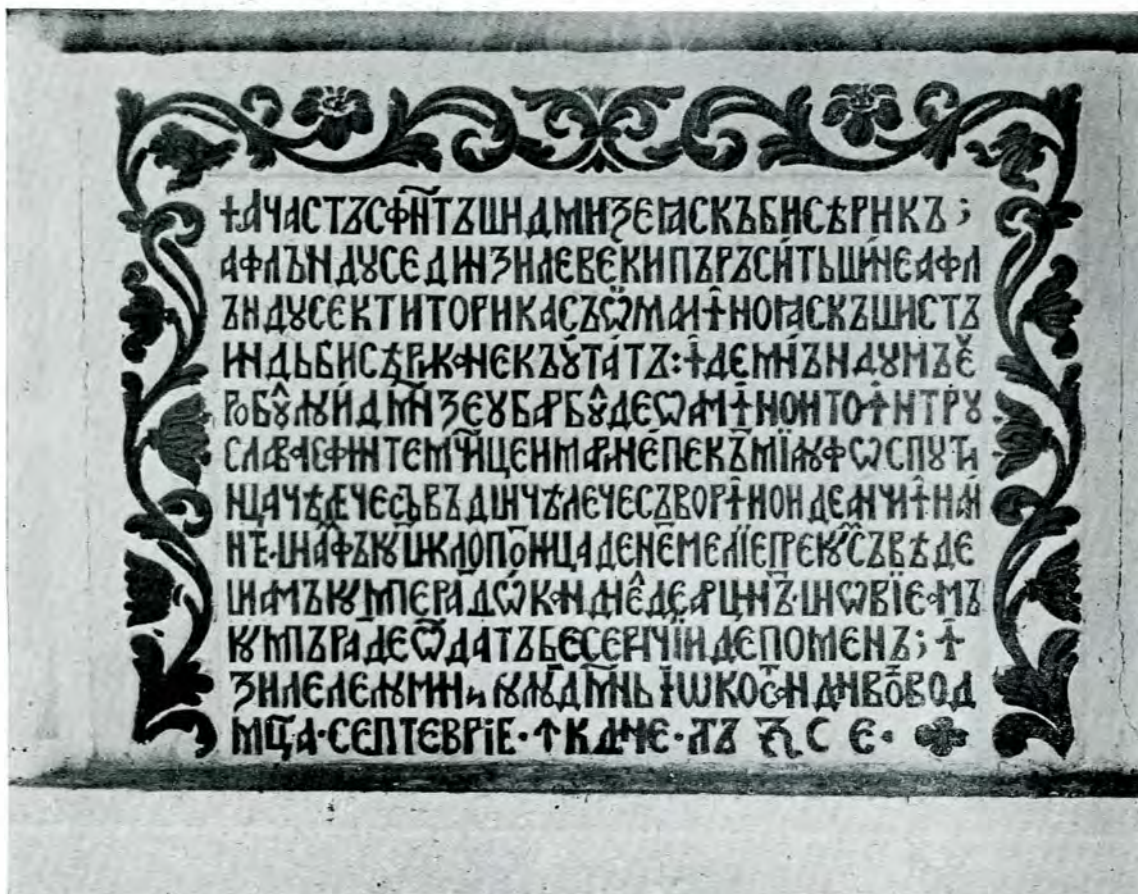 †АЧАСТЪ СФНТЪ ШИ ДМНЗЕꙖСКЪ БИСѢРИКЪ ;
АФЛЪНДꙊСЕ ДИНЗИЛЕ ВЕКИ ПЪРЪСИТЬ ШИНЕАФЛ
ЪНДꙊСЕ КТИТОРИ КАСЪ Ѡ МАИ ꙞНОꙖСКЪ ШИСТЪ
ИНДЬ БИСѢРИКА НЕКЪꙊТАТЪ : Ꙟ ДЕМНЪНДꙊМЪ Е
РОБꙊЛ ЛꙊИ ДМНЗЕꙊ БАРБꙊ ДЕ Ѡ АМ ꙞНОИТО ꙞНТРꙊ
СЛАВА СФИНТЕ МЧНИЦЕИ МАРИНЕ ПЕ КЪМ ІАꙊ ФѠС ПꙊТИ
НЦА ЧѢЛЕ ЧЕ СЬ ВЪД ШИ ЧѢЛЕ ЧЕ СЪ ВОР ꙞНОИ ДЕ АИЧИ ꙞНАИ
НТЕ · ШИ АМ ФЪКꙊТ ШИ КЛОПОТНИЦА ДЕН ТЕМЕЛІЕ ПРЕ КꙊМ СЪ ВѢДЕ
ШИ АМЪ КꙊМПЕРАТ ДОѠ К ДЕ АРЦИНТЪ · ШИ Ѡ ВІЕ АМЪ
КꙊМПЪРАТ ДЕ Ѡ ДАТЪ БЕСЕРИЧІИ ДЕ ПОМЕНЪ ; Ꙟ
ЗИЛЕЛЕ ЛꙊМИНАТꙊЛꙊИ ДМНЬ ІѠ КОСТАНДИН ВОЕВОД
МЦА · СЕПТЕВРІЕ · Ꙟ К ДНЕ · ЛЪ ҂З С Е ·